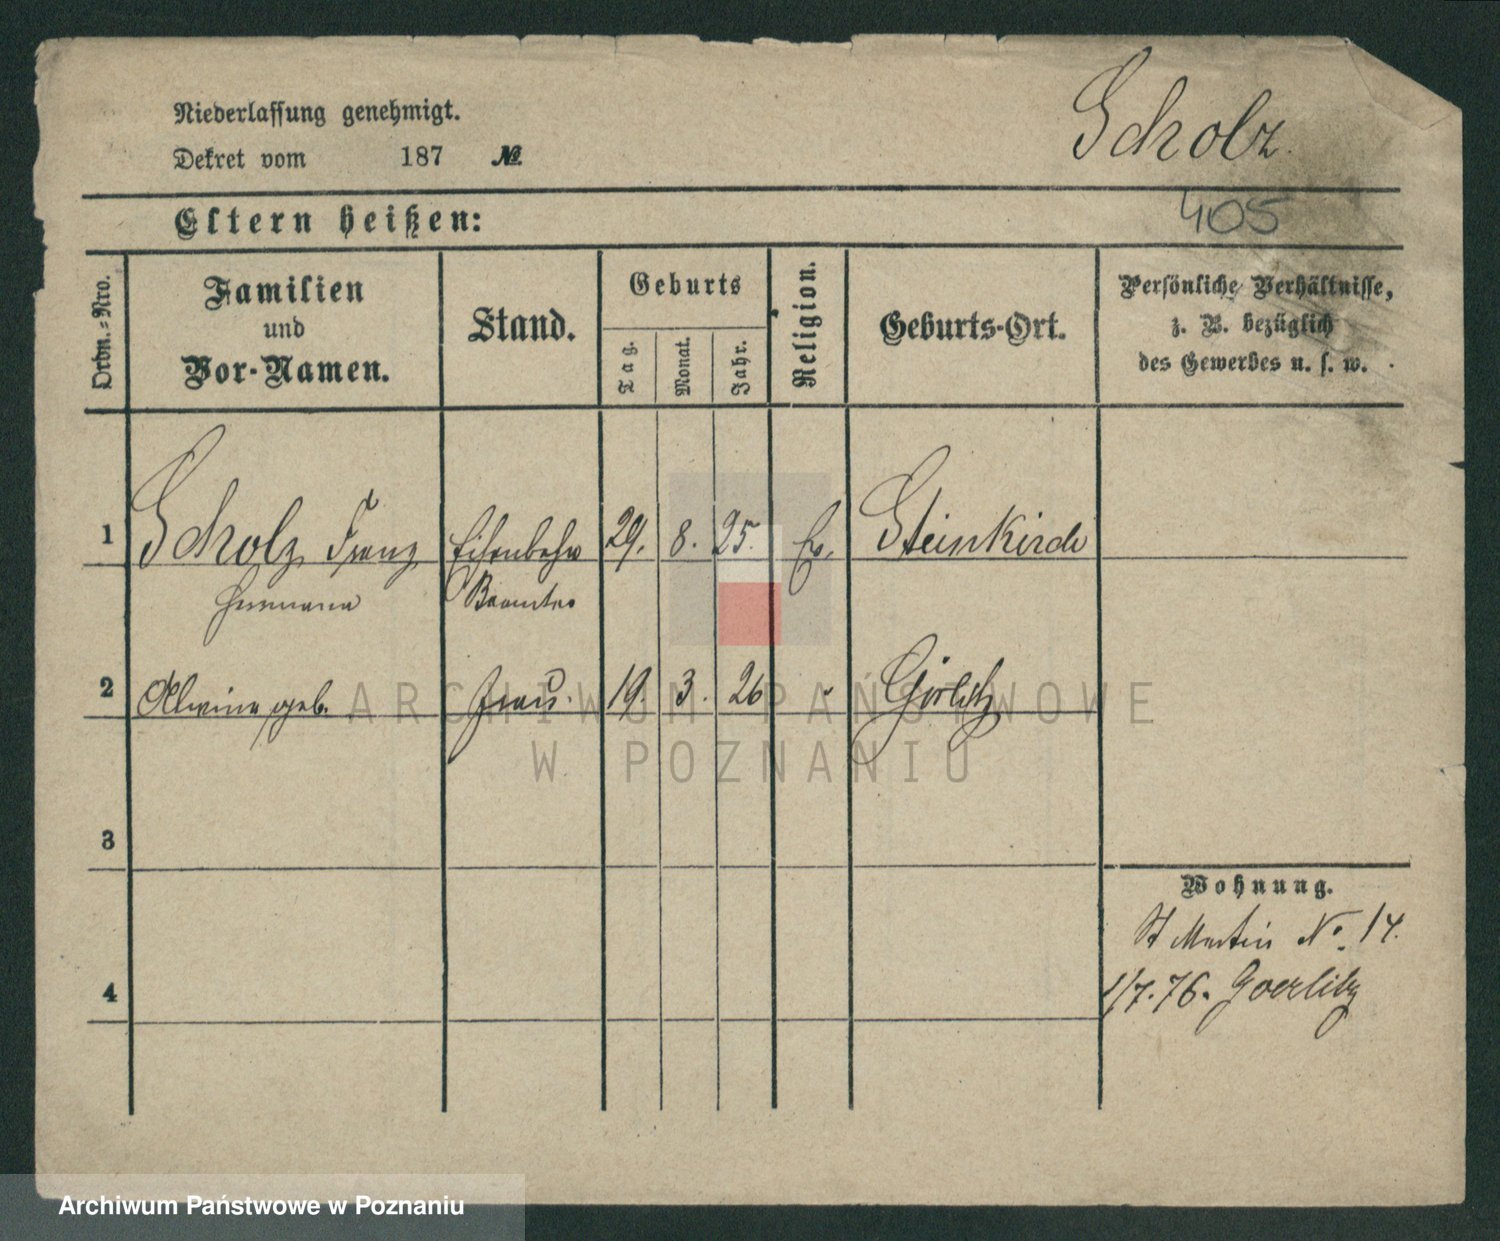 Scholz.
Niederlassung genehmigt.
Dekret vom 187 №
405
Eltern heißen:
Ordn.=Nro.
Familien
und
Vor-Namen.
Stand.
Geburts
Tag.
Monat.
Jahr.
Religion.
Geburts-Ort.
Persönliche Verhältnisse,
z. B. bezüglich
des Gewerbes u. s. w.
1 Scholz Franz Eisenbahn 29. 8. 25. Ev. Steinkirch
Hermann Beamter
2 Alwine geb. Frau. 19. 3. 26 Görlitz
ARCHIWUM PAŃSTWOWE
W POZNANIU
3
Wohnung.
St Martin No. 14.
4
1/7. 76. Goerlitz
Archiwum Państwowe w Poznaniu